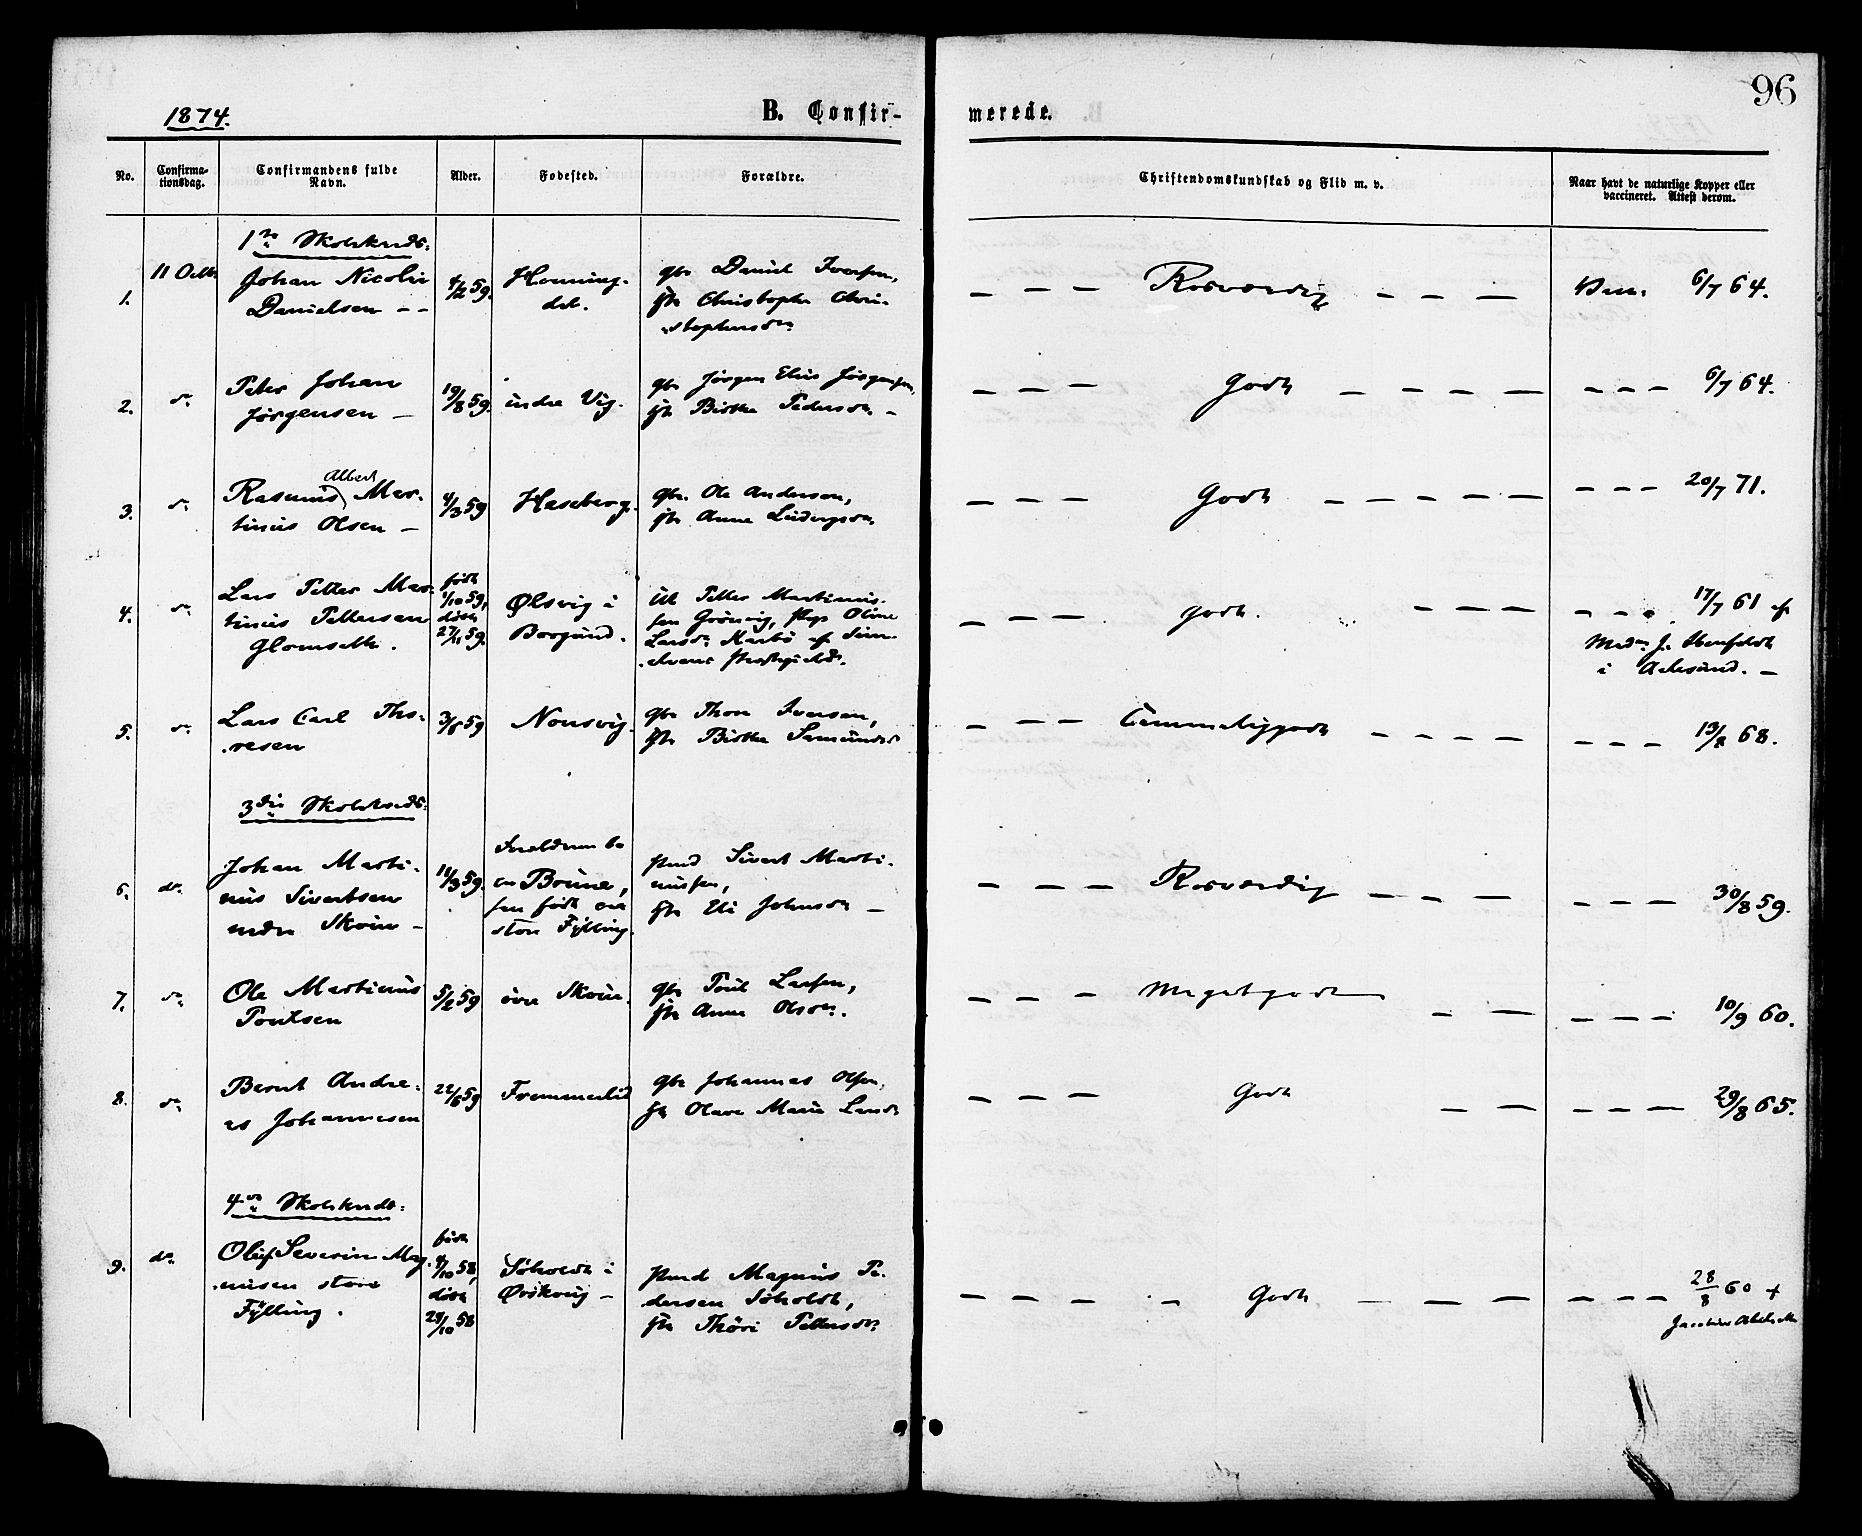 96
1874.
B. Confir-
merede.
No.
Confirma-
tionsdag.
Confirmandens fulde
Navn.
Alder.
Fødested.
Forældre.
Christendomskundskab og Flid m. v.
Naar havt de naturlige Kopper eller
vaccineret. Attest derom.
1ste Skolekreds:
1.
11 Octb
Johan Nicolai
Danielsen - -
4/2 59.
Honning-
dal.
Gbr Daniel Iversen,
Hu Christophe Chri-
stophersdr
- - - Rosværdig - - -
Vacc. 6/7 64.
2.
do
Peter Johan
Jørgensen -
19/8 59.
indre Vig.
Gbr Jørgen Elias Jørgensen,
Hu Birthe Pedersdr -
- - - Godt - - - - -
- - - 6/7 64.
3.
do
Rasmus Albert Mar-
tinus Olsen -
4/3 59
Haseberg.
Gbr. Ole Anderson,
Hu Anne Ludvigsdr,
- - - Godt - - - - -
- - - 20/7 71.
4.
do
Lars Petter Mar-
tinus Pettersen
Glomseth.
født
1/10 59,
døbt
27/11 59.
Ølsvig i
Borgund.
Petter Martinus-
sen Grönvig, Pige Oline
Larsdr
- godt. - - -
- - - 17/7 61 af
J.
i Aalesund. -
5.
do
Lars Carl Tho-
resen
3/6 59
Nonsvig.
Gbr Thore Iversen,
Hu Birthe Samundsdr
- - - Temmelig godt - - - -
- - - 13/8 68.
3die Skolekreds:
6.
do.
Johan Marti-
nus Sivertsen
nedre Skoue -
11/3 59.
Forældrene bo
paa Brune,
født paa
store Fylling.
Sivert Marti-
nussen,
Hu Eli Johnsdr -
- - - Rosværdig - - -
- - - 30/8 59.
7.
do
Ole Martinus
Poulsen
5/2 59
övre Skoue.
Gbr Poul Larsen,
Hu Anne Olsdr.
- - - Meget godt - -
- - - 10/9 60.
8.
do
Bernt Andre-
as Johannesen
22/6 59
Fremmerlid
Gbr Johannes Olsen,
Hu Olave Marie Larsdr
- - - Godt - -
- - - 29/8 65.
4de Skolekreds:
9.
do.
Oluf Severin Mag-
nusen store
Fylling.
født
4/10 58,
døbt
24/10 58
Søholdt i
Ørskoug -
Magnus Pe-
dersen Søholdt,
Hu Thöri Pettersdr
- - - - Godt - - - -
- - - 28/8 60 +